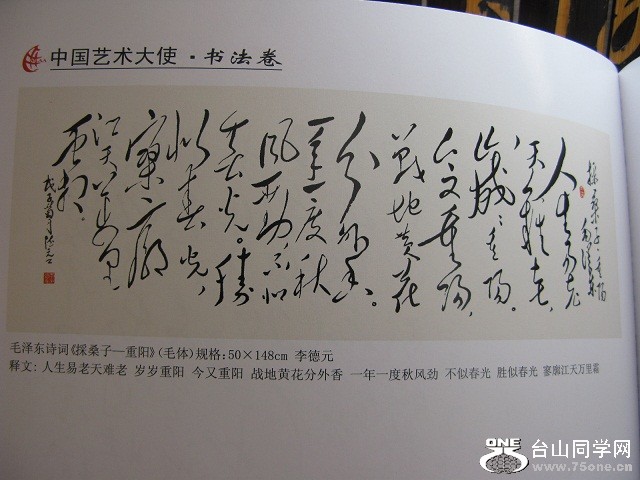 中国艺术大使·书法卷
採桑子·重阳
毛泽东
人生易老
天难老,
岁岁重阳。
今又重阳,
战地黄花
分外香。
一年一度秋
风劲,不似
春光。胜
似春光,
寥廓
江天万里
霜。
毛泽东诗词《採桑子—重阳》(毛体)规格:50×148cm 李德元
释文: 人生易老天难老 岁岁重阳 今又重阳 战地黄花分外香 一年一度秋风劲 不似春光 胜似春光 寥廓江天万里霜
ONE 台山同学网
www.75one.cn